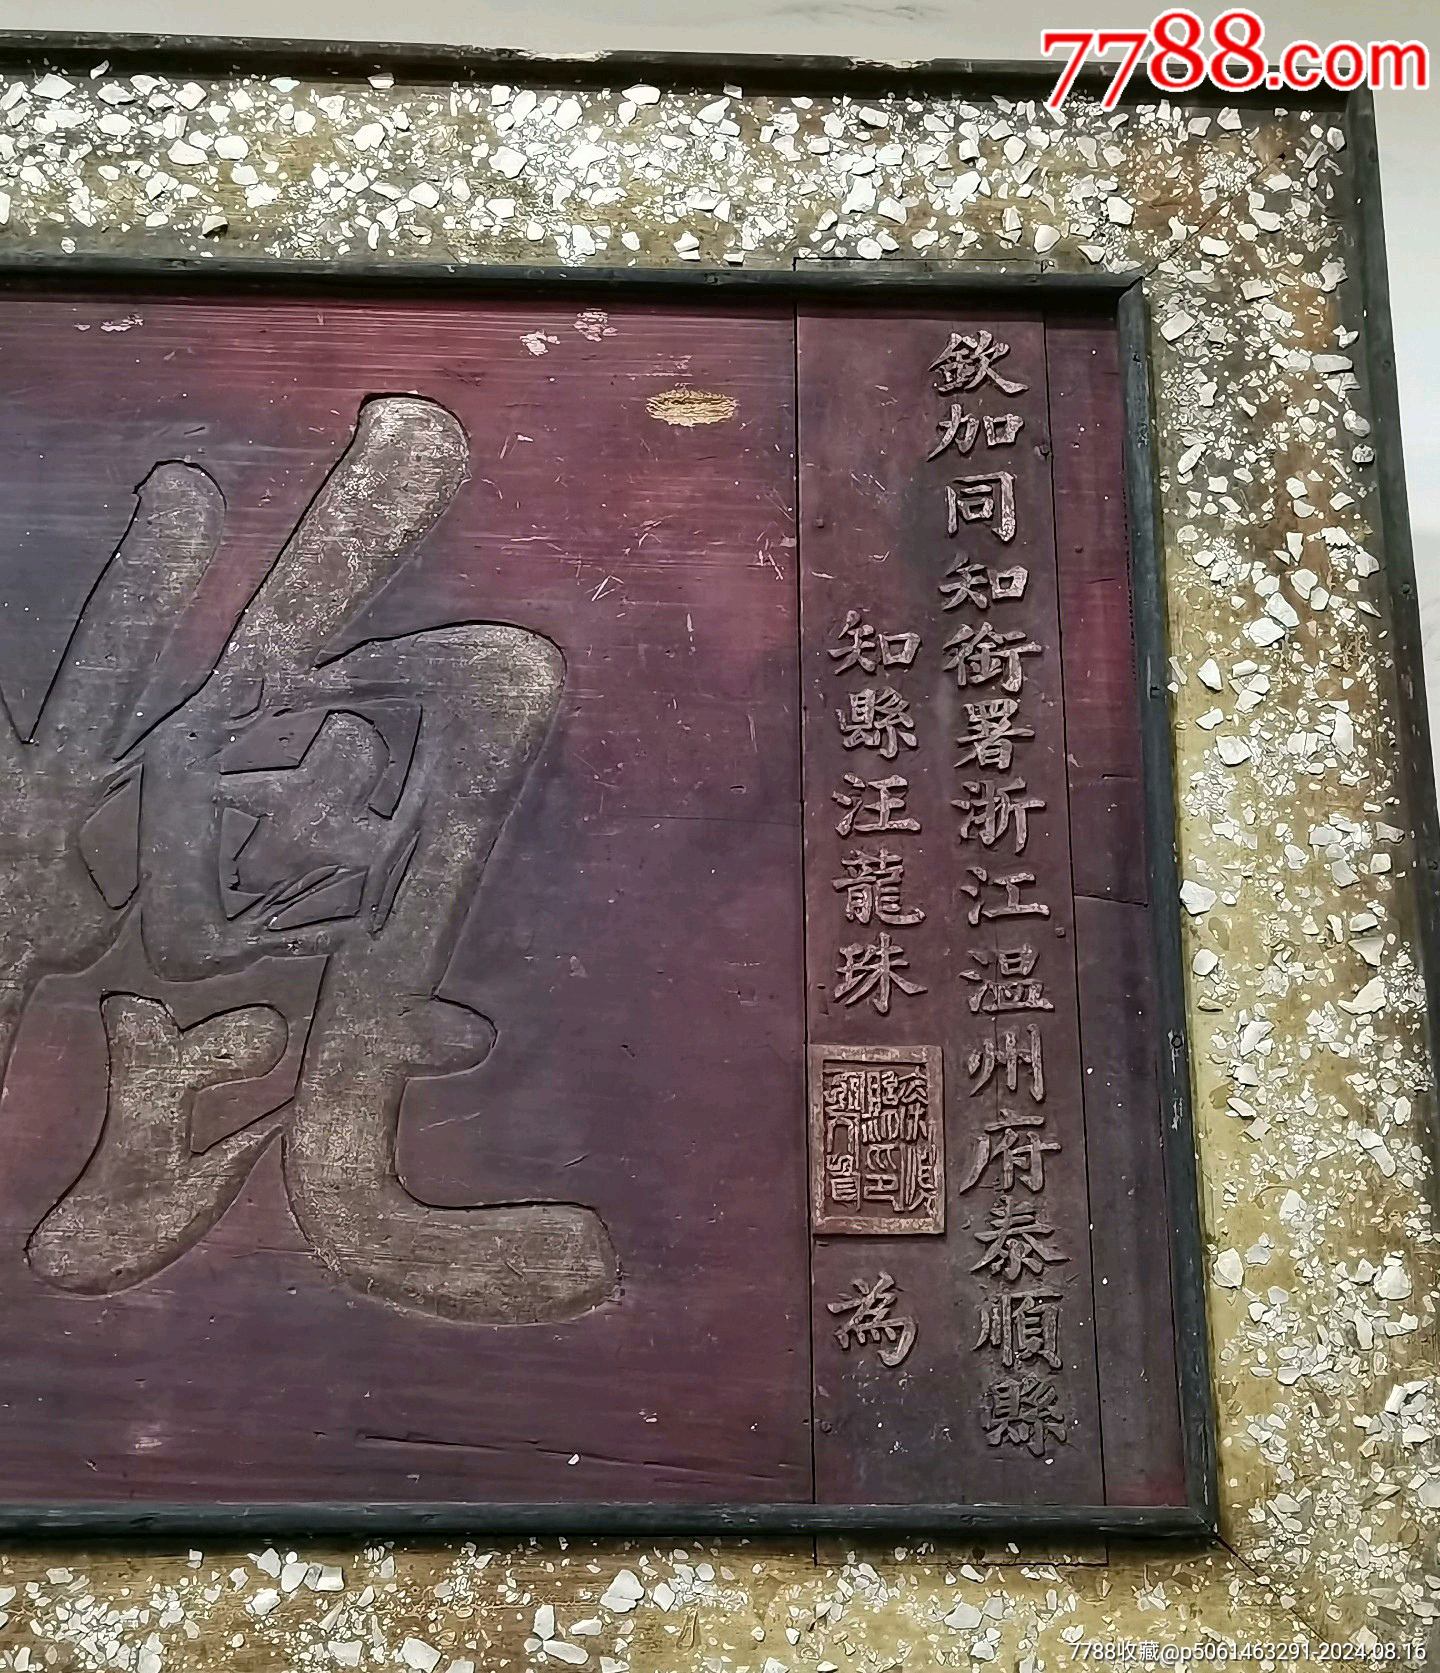 7788.com
欽加同知銜署浙江温州府泰順縣
知縣汪龍珠
為
7788收藏@p5061463291-2024.08.16